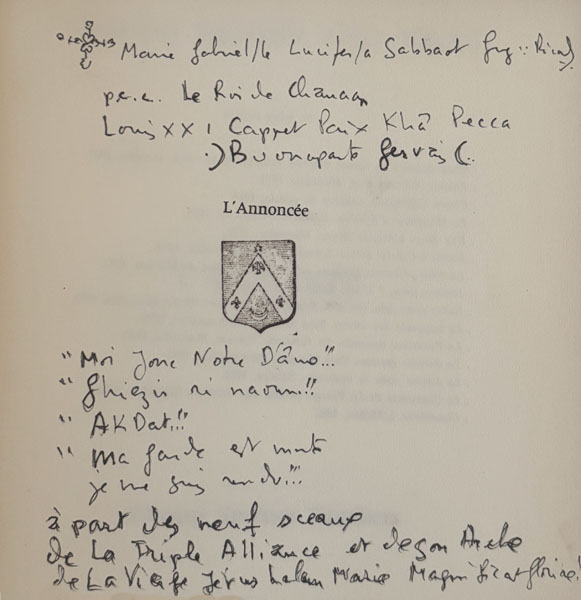 Marie Gabriel/le Lucifer/a Sabbaot
p.c.c. Le Roi de Chanaan
Louis XX I Cappet Paix Khâ Pecca
·)Buonaparte Gervais(..
L'Annoncée
"Moi Jone Notre D'âme!!!
" ni naoum!!!
" AKDat!!!
" Ma garde est morte
je me suis rendu!!!
à part des neuf sceaux
de La Triple Alliance et de son Arche
de La Vierge Jérusalem Marie Magnificat